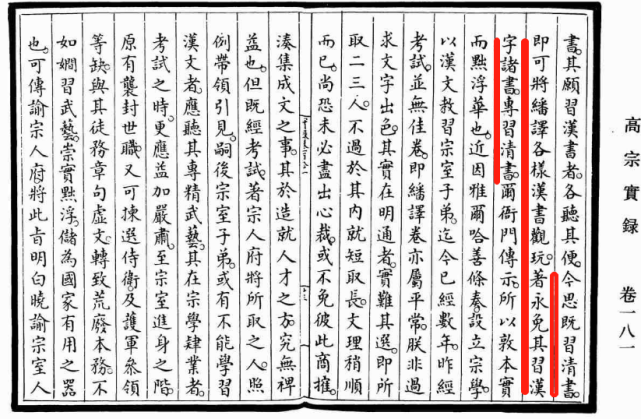 高宗實錄 卷一八一
書。其願習漢書者。各聽其便。今思既習清書。
即可將繙譯各樣漢書觀玩。著永免其習漢
字諸書。專習清書。爾衙門傳示。所以敦本實
而黜浮華也。近因雅爾哈善條奏設立宗學。
以漢文教習宗室子弟。迄今已經數年。昨經
考試。並無佳卷。即繙譯卷亦屬平常。朕非過
求文字出色。其實在明通者。實難其選。即所
取二三人。不過於其內就短取長。文理稍順
而已。尚恐未必盡出心裁。或不免彼此商搉。
湊集成文之事。其於造就人才之方。究無裨
益也。但既經考試。著宗人府將所取之人。照
例帶領引見。嗣後宗室子弟。或有不能學習
漢文者。應聽其專精武藝。其在宗學肄業者。
考試之時。更應益加嚴肅。至宗室進身之階。
原有襲封世職。又可揀選侍衛。及護軍參領
等缺。與其徒務章句虛文。轉致荒廢本務。不
如嫺習武藝。崇實黜浮。儲為國家有用之器
也。可傳諭宗人府將此旨明白曉諭宗室人